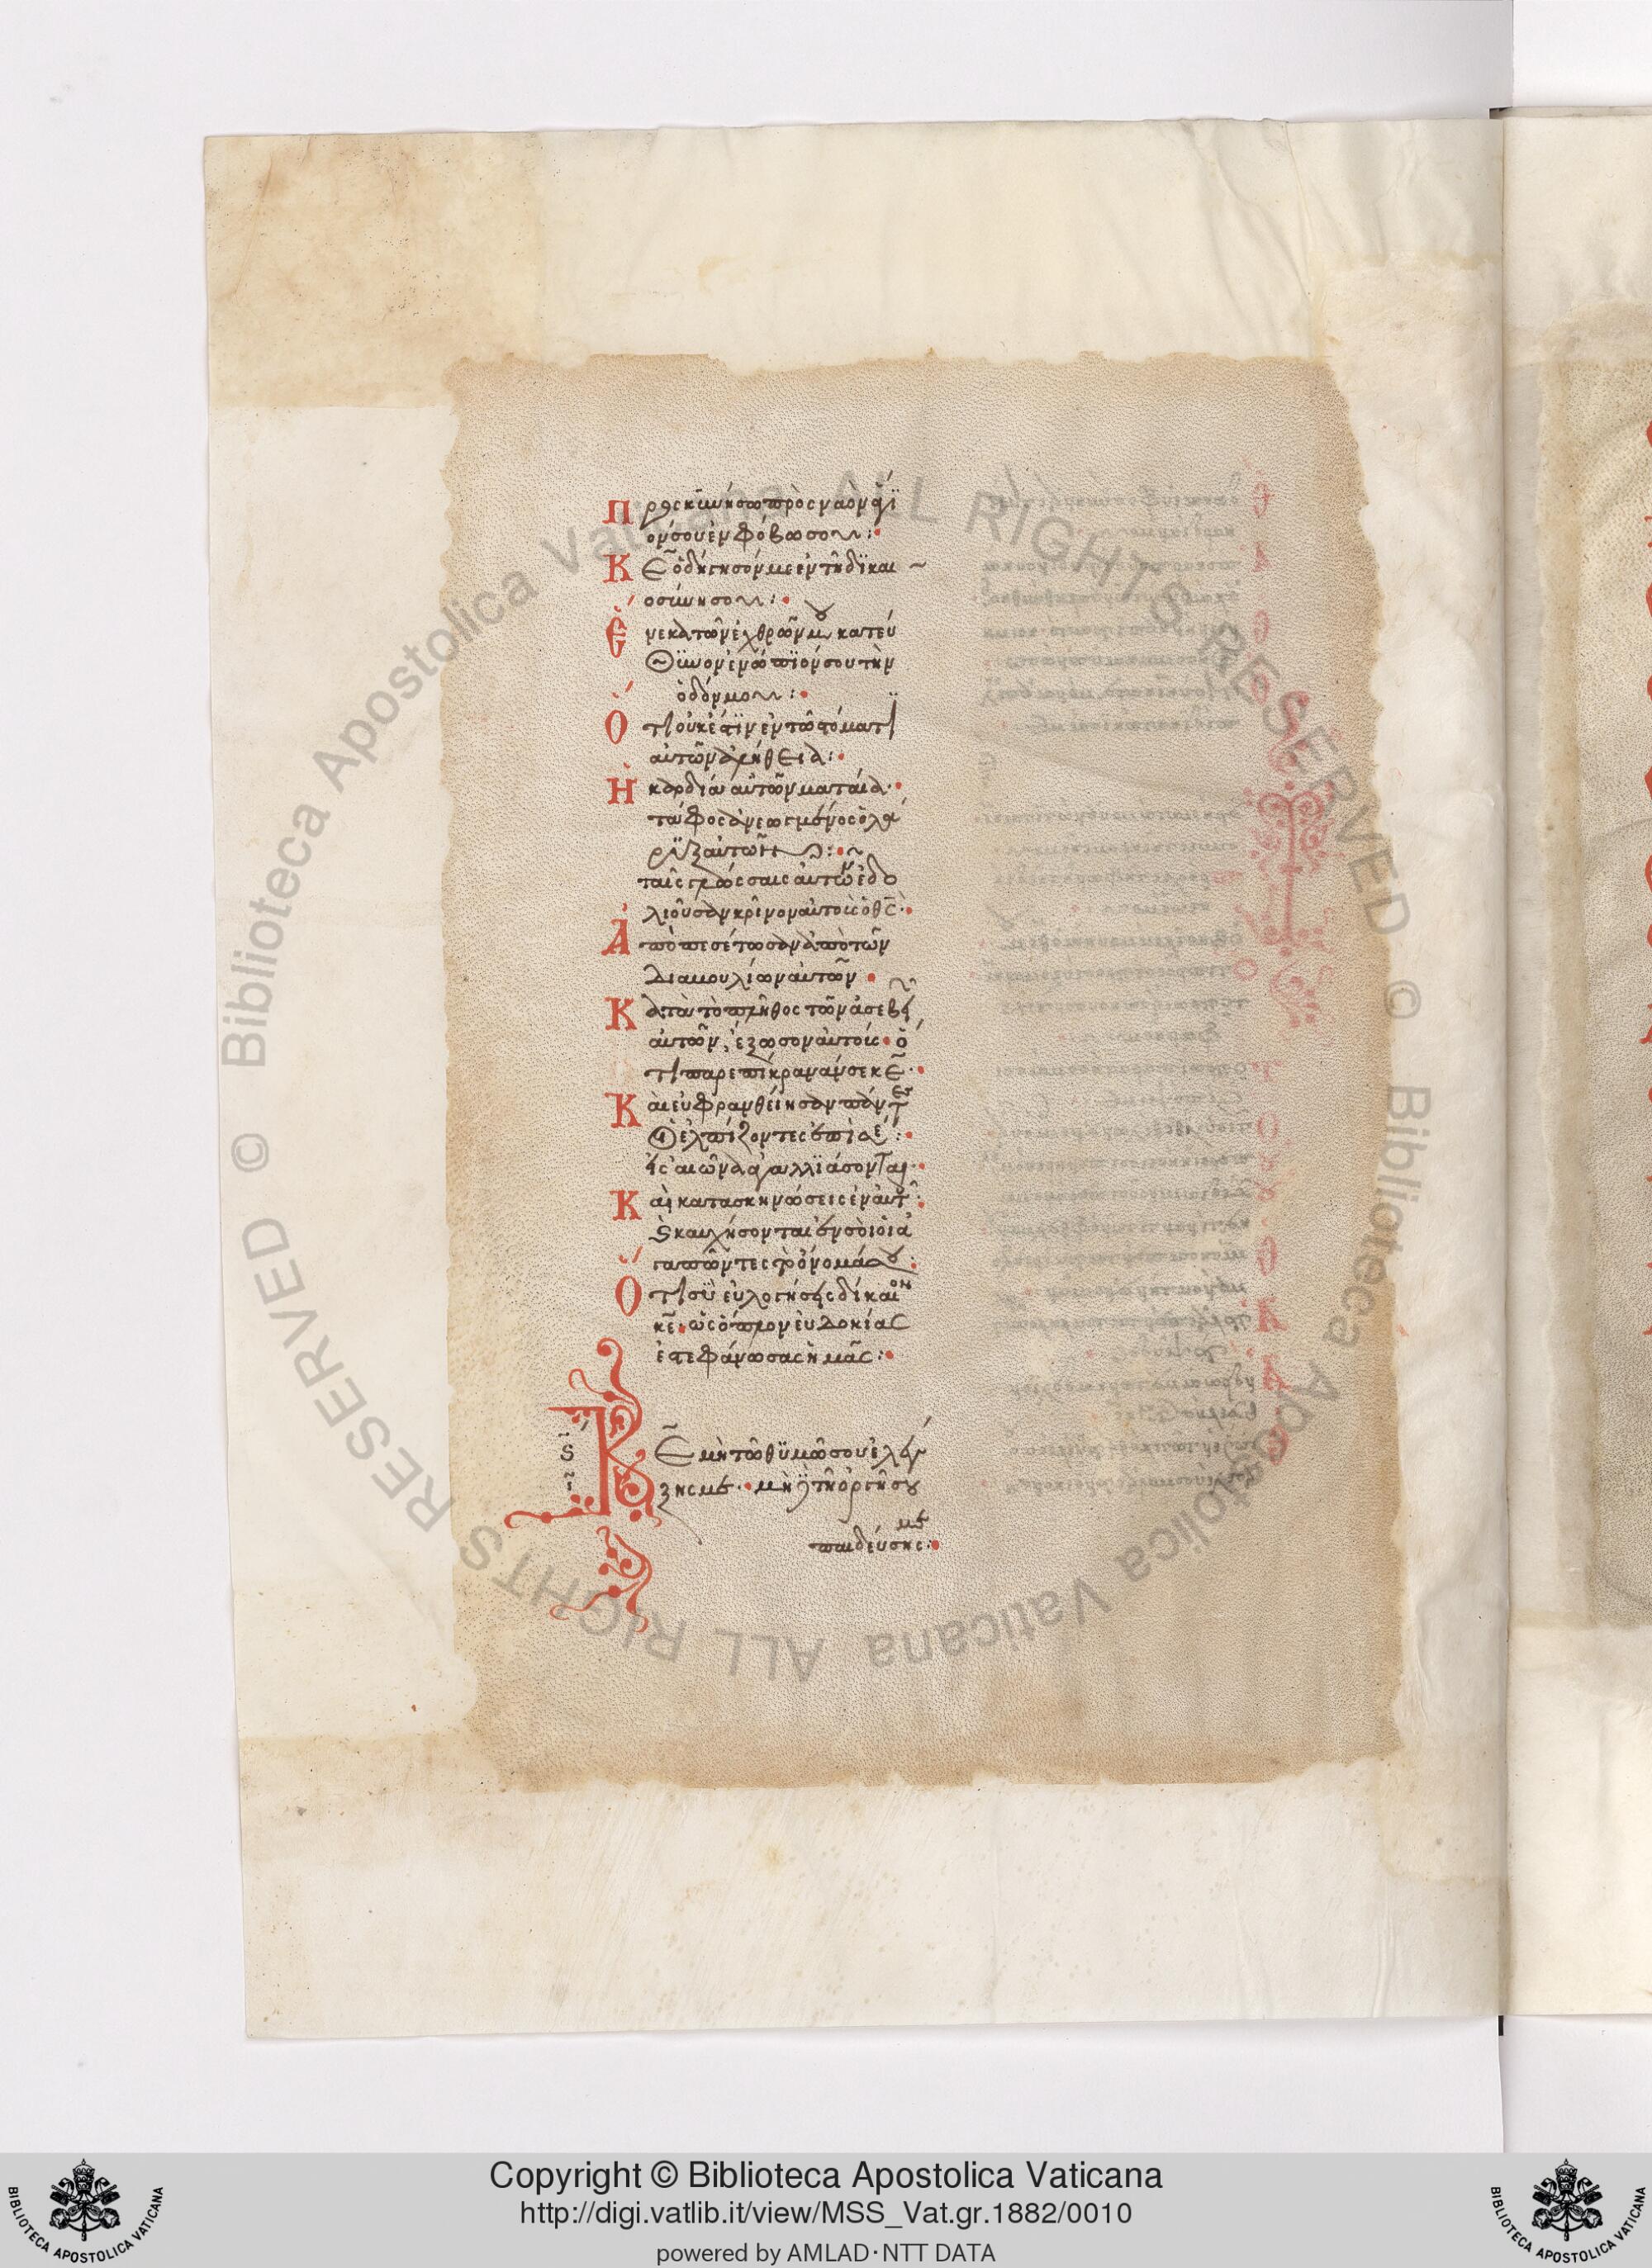 Προσκυνήσω πρὸς ναὸν ἅγι
όν σου ἐν φόβω σου:
Κε ὁδήγησόν με ἐν τῆ δϊκαι
οσύνη σου:
Ἕνεκα τῶν ἐχθρῶν μου κατεύ
θϋνον ἐνώπϊόν σου τὴν
ὁδόν μου:
Ὅτι οὐκ ἔστϊν ἐν τῶ στόματϊ
αὐτῶν ἀλήθεια:
Ἡ καρδία αὐτῶν ματαία·
τάφος ἀνεωγμένος ὁ λά
ρυγξ αὐτῶν:
ταῖς γλώσσαις αὐτῶν ἐδο
λιοῦσαν κρῖνον αὐτοὺς ὁ θς·
Ἀποπεσέτωσαν ἀπὸ τῶν
διαβουλίων αὐτῶν
Κατὰ τὸ πλῆθος τῶν ἀσεβειῶν
αὐτῶν, ἔξωσον αὐτούς· ὅ
τι παρεπίκρανάν σε κε·
Καὶ εὐφρανθείησαν πάντες
οἱ ἐλπίζοντες ἐπὶ σέ:
εἰς αἰῶνα ἀγαλλϊάσονται·
Καὶ κατασκηνώσεις ἐν αὐτοῖς:
καὶ καυχήσονται ἐν σοὶ οἱ ἀ
γαπῶντες τὸ ὄνομά σου:
Ὅτι σϋ εὐλογήσεις δίκαιον
κε· ὡς ὅπλον εὐδοκίας
ἐστεφάνωσας ἡμᾶς:
ϛ Κε μὴ τῶ θϋμῶ σου ἐλέγ
ξης με· μὴ δὲ τῆ ὀργῆ σου
παιδεύσης με:
© Biblioteca Apostolica Vaticana ALL RIGHTS RESERVED © Biblioteca Apostolica Vaticana ALL RIGHTS RESERVED
Copyright © Biblioteca Apostolica Vaticana
http://digi.vatlib.it/view/MSS_Vat.gr.1882/0010
powered by AMLAD·NTT DATA
BIBLIOTECA APOSTOLICA VATICANA
BIBLIOTECA APOSTOLICA VATICANA